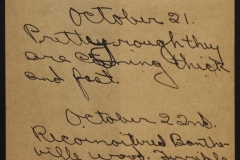 October 21.
Pretty rough they
are coming thick
and fast.
October 22nd.
Reconoitured Bonthe-
ville wood.